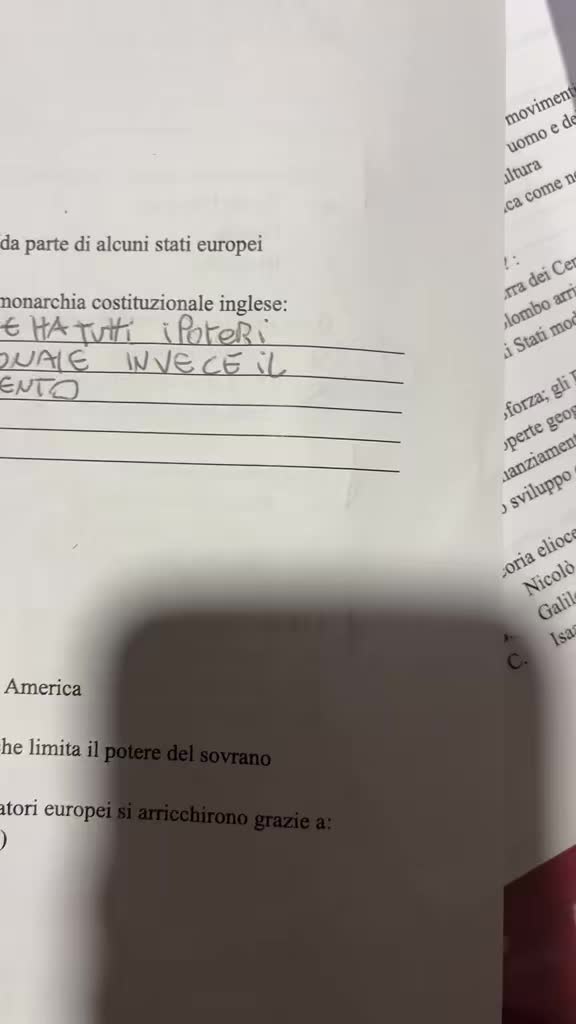 da parte di alcuni stati europei
monarchia costituzionale inglese:
E HA TUTTI i POTERI
ONALE INVECE IL
ENTO
America
he limita il potere del sovrano
atori europei si arricchirono grazie a:
)
movimenti
uomo e de
ultura
ca come ne
! :
rra dei Cen
olombo arri
i Stati mod
sforza; gli
operte geog
nanziament
o sviluppo
oria elioce
Nicolò
Galile
C. Isaa